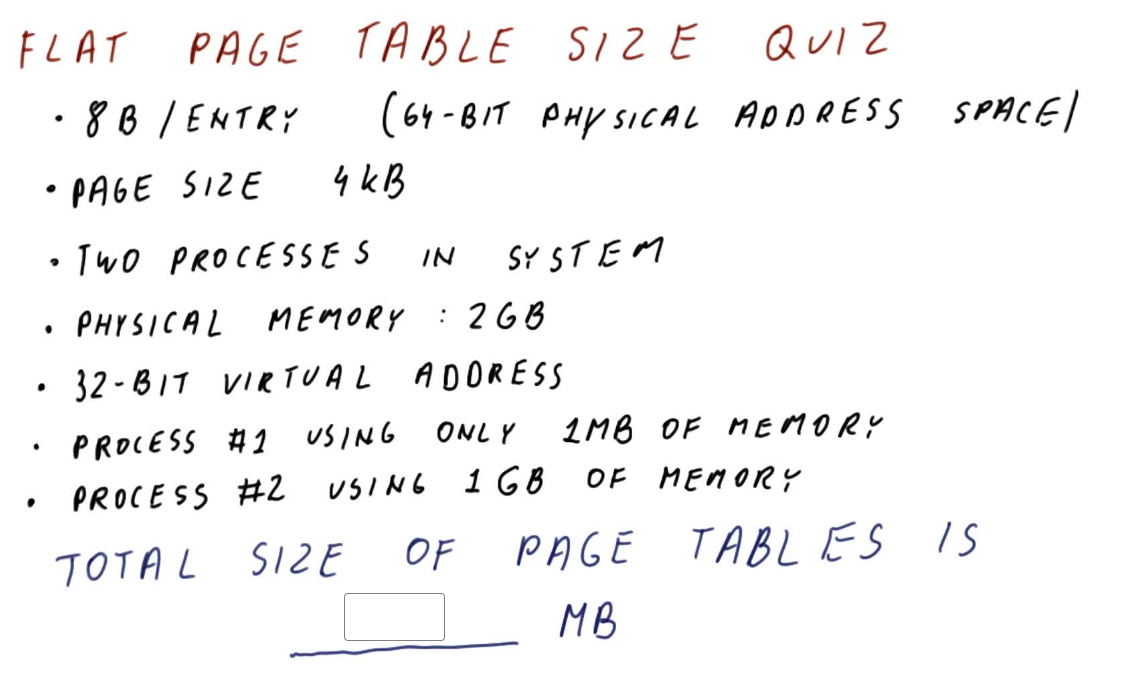 FLAT PAGE TABLE SIZE QUIZ
• 8B/ENTRY (64-BIT PHYSICAL ADDRESS SPACE)
• PAGE SIZE 4kB
• TWO PROCESSES IN SYSTEM
• PHYSICAL MEMORY : 2GB
• 32-BIT VIRTUAL ADDRESS
• PROCESS #1 USING ONLY 1MB OF MEMORY
• PROCESS #2 USING 1GB OF MEMORY
TOTAL SIZE OF PAGE TABLES IS
MB